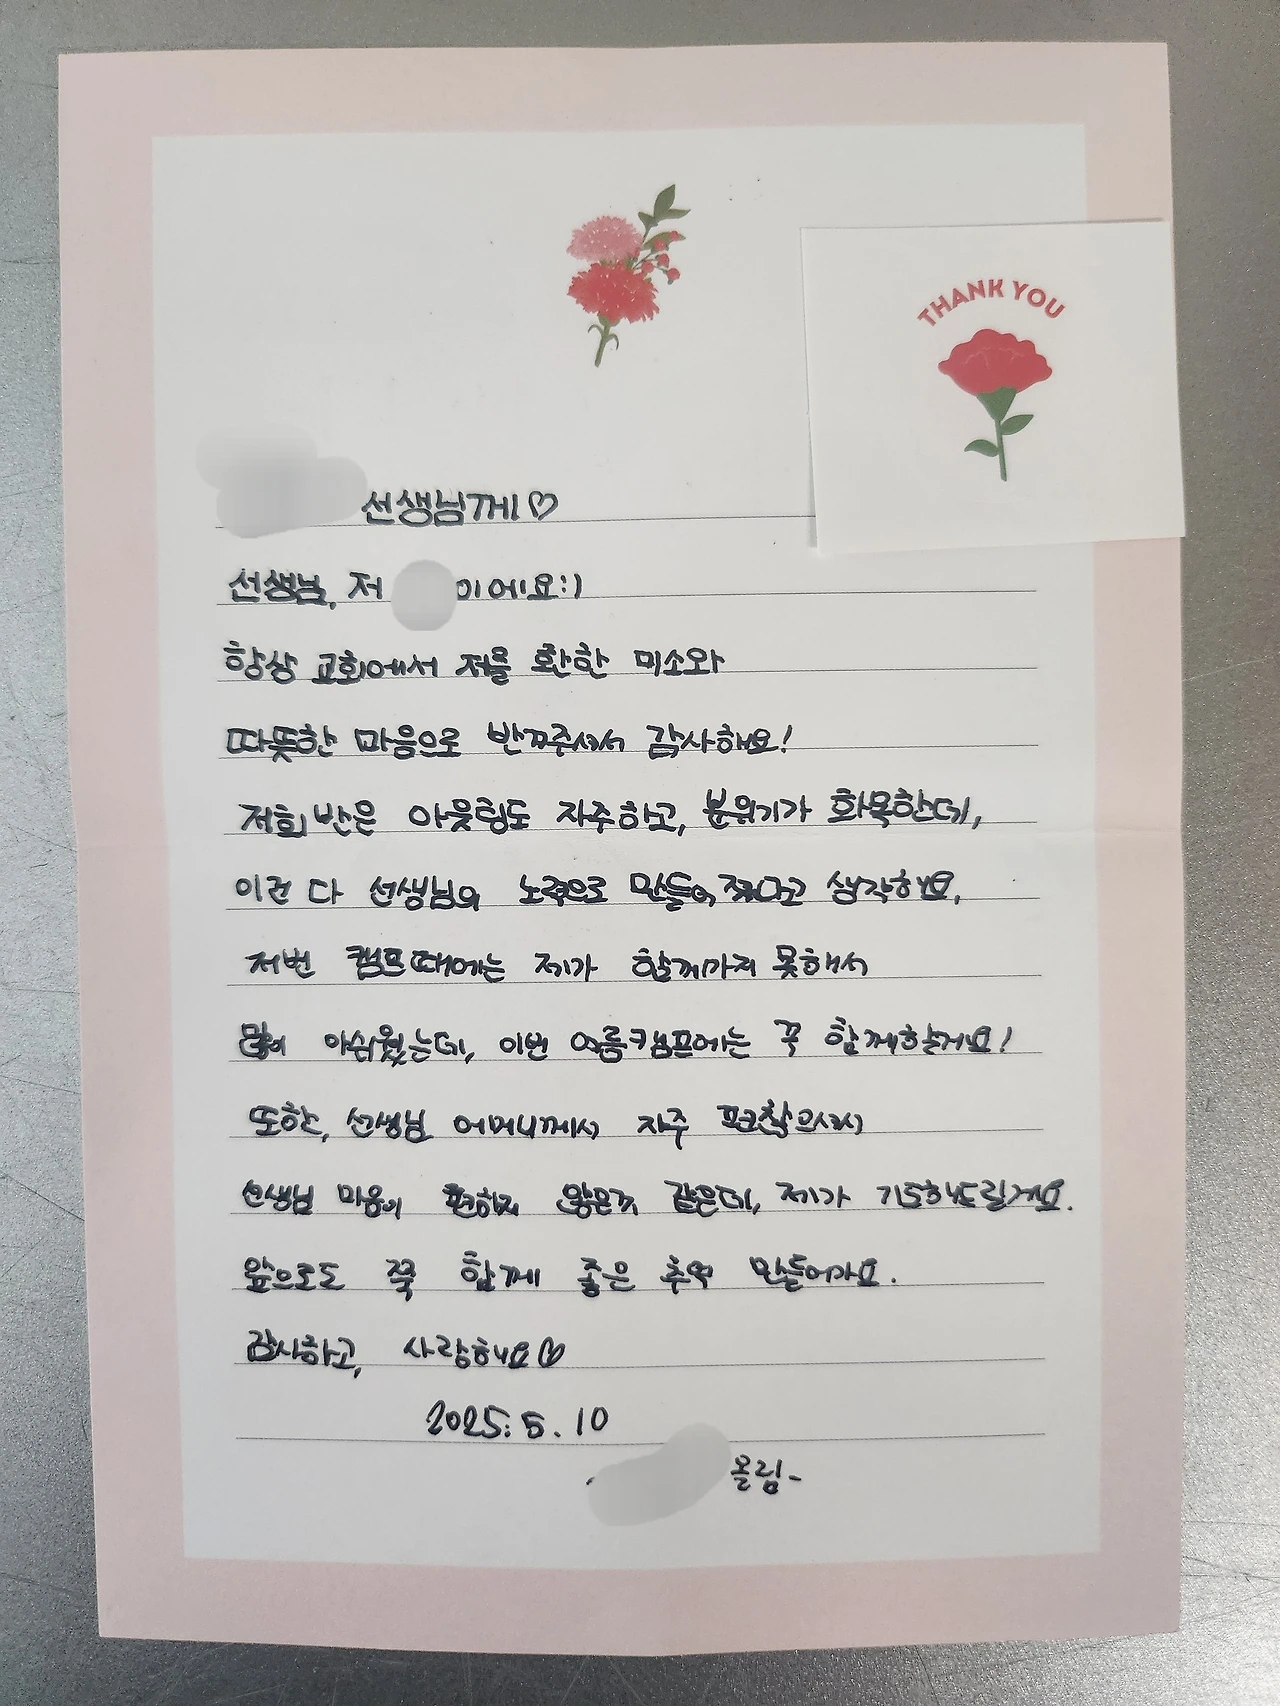 THANK YOU
선생님께♡
선생님, 저 이에요:)
항상 교회에서 저를 환한 미소와
따뜻한 마음으로 반겨주셔서 감사해요!
저희 반은 아웃팅도 자주하고, 분위기가 화목한데,
이건 다 선생님의 노력으로 만들어졌다고 생각해요.
저번 캠프때에는 제가 함께가지 못해서
많이 아쉬웠는데, 이번 여름캠프에는 꼭 함께할게요!
또한, 선생님 어머니께서 자주
선생님 마음이 편하지 않은것 같은데, 제가 기도해드릴게요.
앞으로도 쭉 함께 좋은 추억 만들어가요.
감사하고, 사랑해요♡
2025. 5. 10
올림-